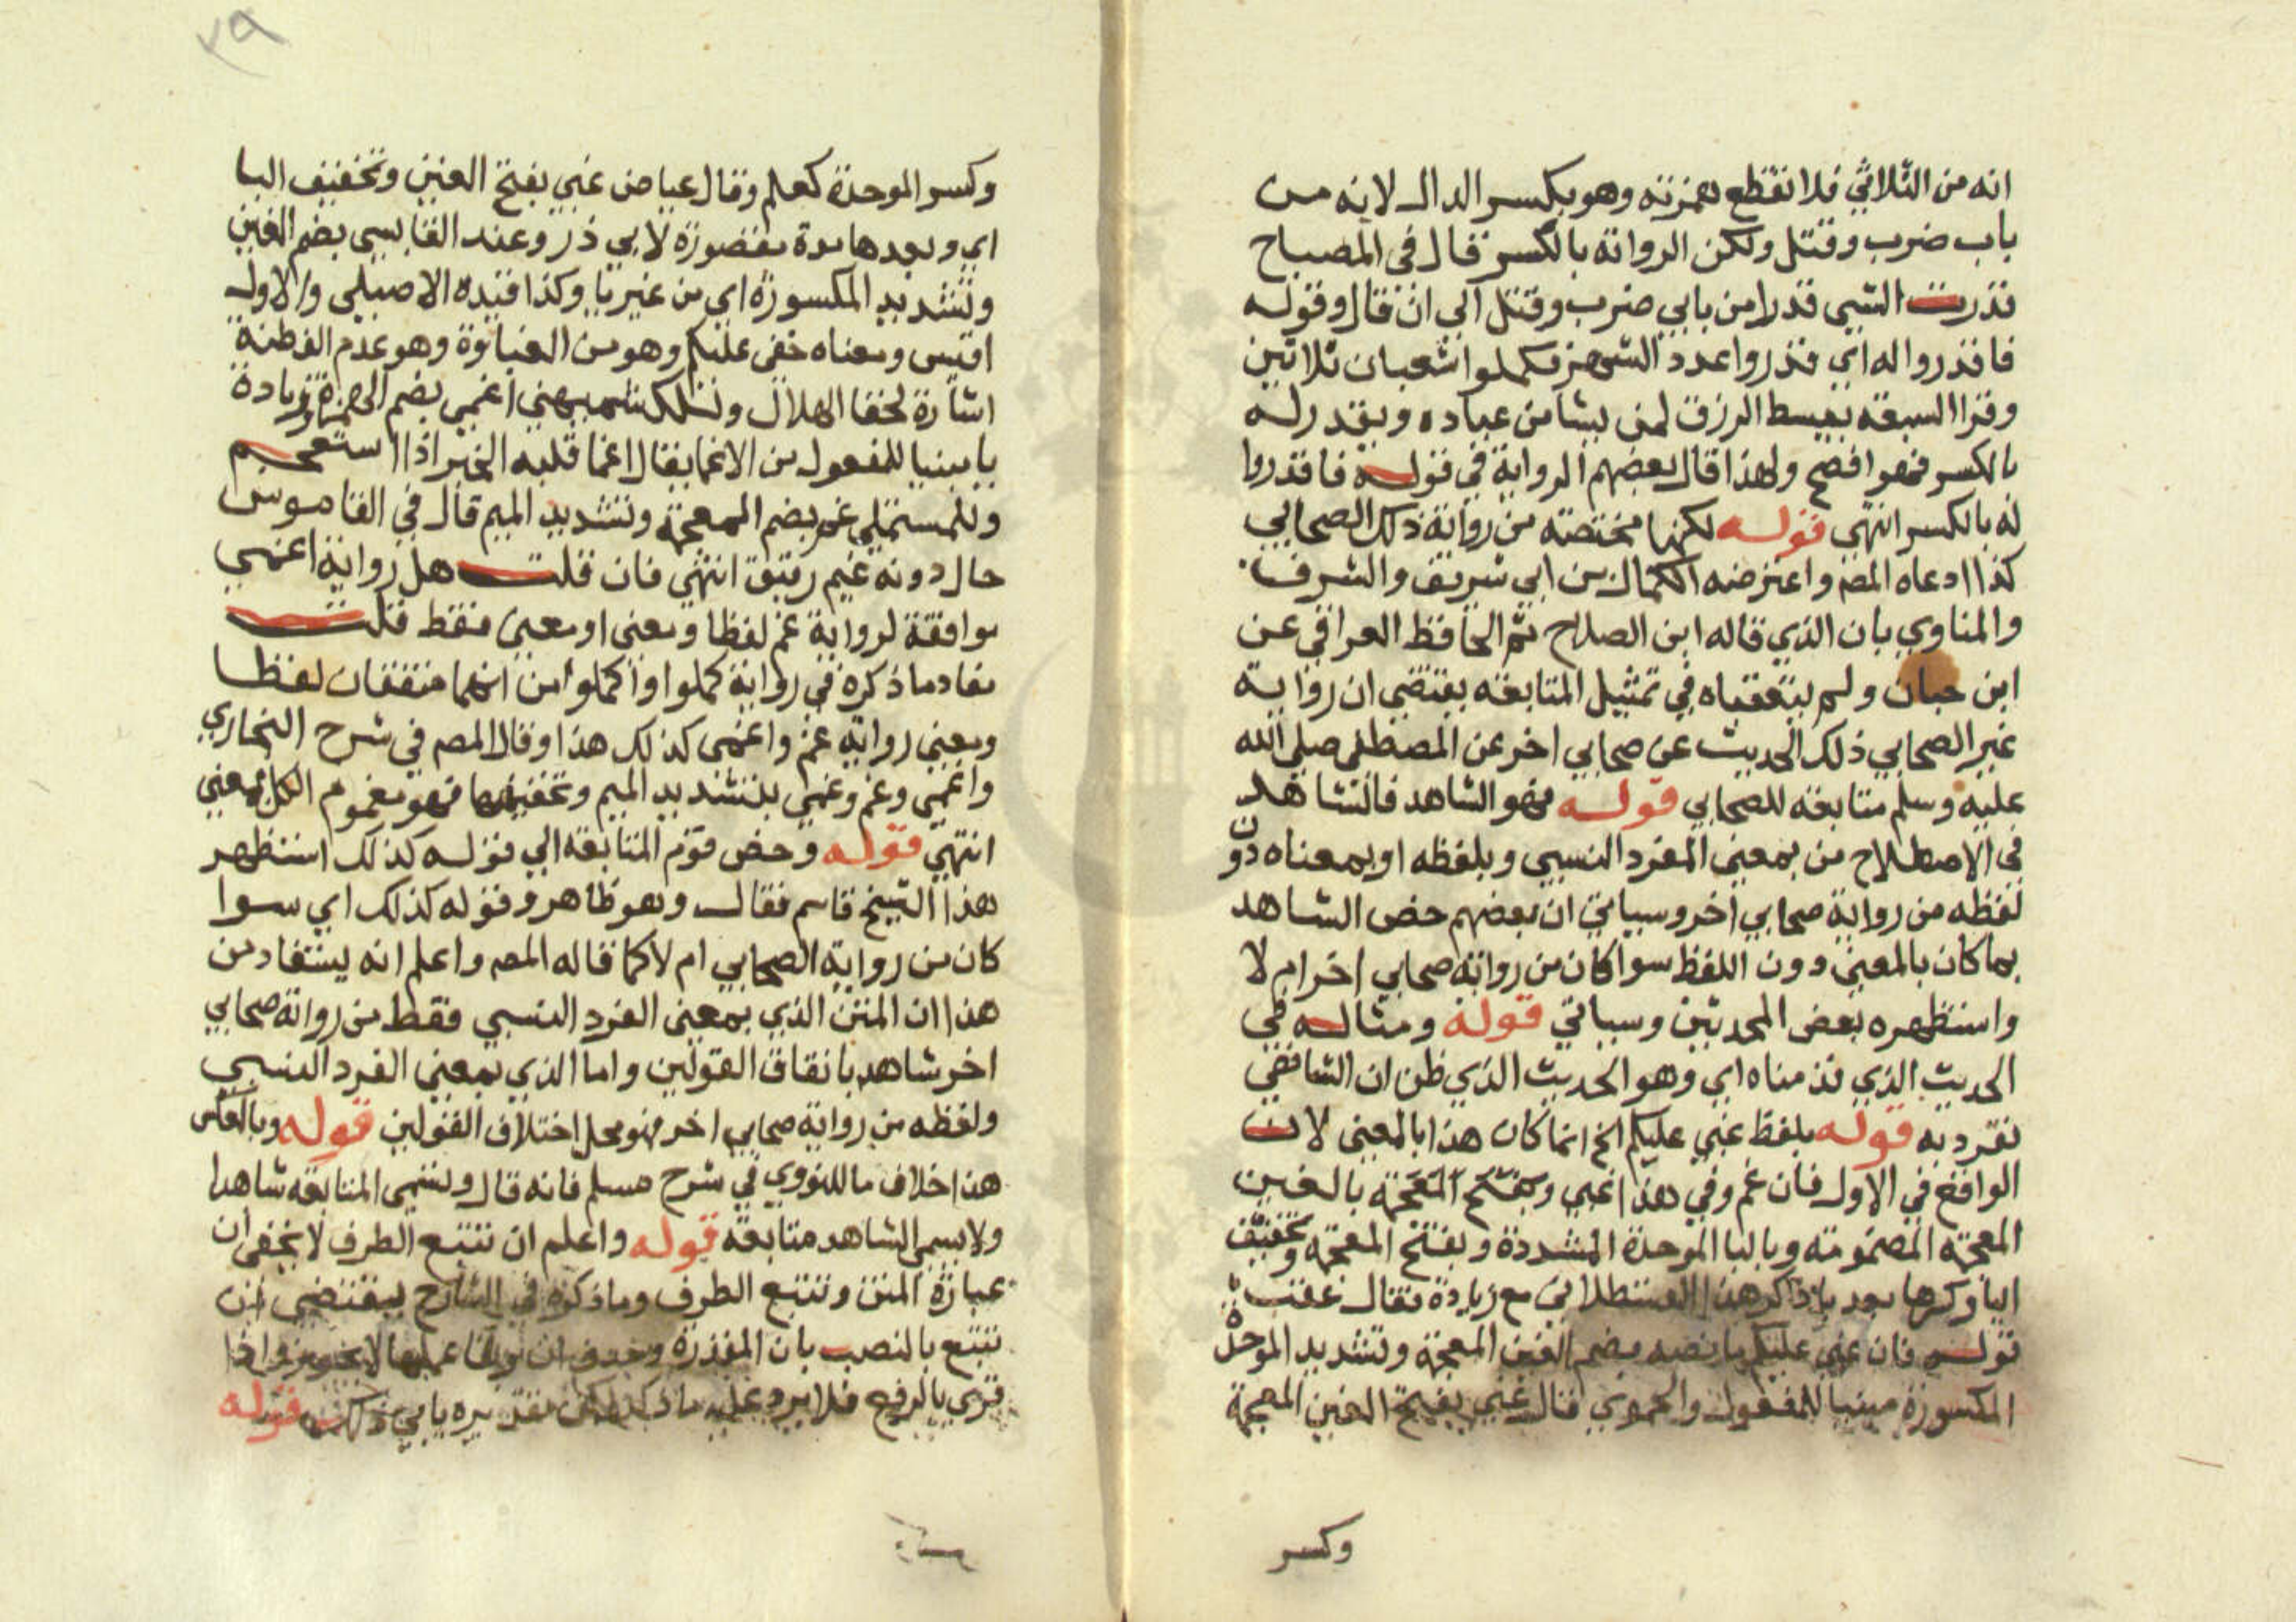 انه من الثلاثي فلا تقطع همزته وهو بكسر الدال لانه من
باب ضرب وقتل ولكن الرواية بالكسر قال في المصباح
قدرت الشيى قدرا من بابي ضرب وقتل الى ان قال وقوله
فاقدروا له اي قدروا عدد الشهر فكملوا شعبان ثلاثين
وقرا السبعة يبسط الرزق لمن يشا من عباده ويقدر له
بالكسر فهو افصح ولهذا قال بعضهم الرواية في قوله فاقدروا
له بالكسر انتهى قوله لكنها مختصة من رواية ذلك الصحابي
كذا ادعاه المصـ واعترضه الكمال بن ابي شريف والشرف
والمناوي بان الذي قاله ابن الصلاح ثم الحافظ العراقي عن
ابن حبان ولم يتعقباه في تمثيل المتابعة يقتضي ان رواية
غير الصحابي ذلك الحديث عن صحابي اخر عن المصطفى صلى الله
عليه وسلم متابعة للصحابي قوله فهو الشاهد فالشاهد
في الاصطلاح من بمعنى الفرد النسبي وبلفظه او بمعناه دون
لفظه من رواية صحابي اخر وسياتي ان بعضهم خص الشاهد
بما كان بالمعنى دون اللفظ سوا كان من رواية صحابي اخر ام لا
واستظهره بعض المحدثين وسياتي قوله ومثاله في
الحديث الذي قدمناه اي وهو الحديث الذي ظن ان الشافعي
تفرد به قوله بلفظ غبي عليكم الخ انما كان هذا بالمعنى لان
الواقع في الاول فان غم وفي هذا غبي وبفتح المعجمة بالغين
المعجمة المضمومة وباليا الموحدة المشددة وبفتح المعجمة وتخفيف
اليا وكسرها بعد يا ذكر هذا القسطلاني مع زيادة فقال عقب
قوله فان غبي عليكم ما نصه بضم الغين المعجمة وتشديد الموحدة
المكسورة مبنيا للمفعول والحموي قال غبي بفتح الغين المعجمة
وكسر
وكسر الموحدة كعلم وقال عياض غبي بفتح الغين وتخفيف اليا
اي وبعدها مدة مقصورة لابي ذر وعند القابسي بضم الغين
وتشديد المكسورة اي من غير يا وكذا قيده الاصيلي والاول
اقيس ومعناه خفى عليكم وهو من الغباوة وهو عدم الفطنة
اشارة لخفا الهلال وللكشميهني اغمي بضم الهمزة وزيادة
يا مبنيا للمفعول من الاغما يقال اغما قلبه الخبر اذا استعجم
وللمستملي غم بضم المعجمة وتشديد الميم قال في القاموس
حال دونه غيم رقيق انتهى فان قلت هل رواية اغمي
موافقة لرواية غم لفظا ومعنى او معنى فقط قلت
مفاد ما ذكره في رواية كملوا واكملوا من انهما متفقان لفظا
ومعنى رواية غم واغمى كذلك هذا وقال المصـ في شرح البخاري
واغمي وغم وغمي بتشديد الميم وتخفيفها فهو مغموم الكل بمعنى
انتهى قوله وخص قوم المتابعة الى قوله كذلك استظهر
هذا الشيخ قاسم فقال وهو ظاهر وقوله كذلك اي سوا
كان من رواية الصحابي ام لا كما قاله المصـ واعلم انه يستفاد من
هذا ان المتن الذي بمعنى الفرد النسبي فقط من رواية صحابي
اخر شاهد باتفاق القولين واما الذي بمعنى الفرد النسبي
ولفظه من رواية صحابي اخر فهو محل اختلاف القولين قوله وبالعكس
هذا خلاف ما للنووي في شرح مسلم فانه قال وتسمى المتابعة شاهدا
ولا يسمى الشاهد متابعة قوله واعلم ان تتبع الطرق لا يخفى ان
عبارة المتن وتتبع الطرق وما ذكره في الشارح يقتضي ان
تتبع بالنصب بان المقدرة وحذف ان وبقا عملها لا يجوز واذا
قرى بالرفع فلا يرد عليه ما ذكر لكن تقديره يابى ذلك قوله